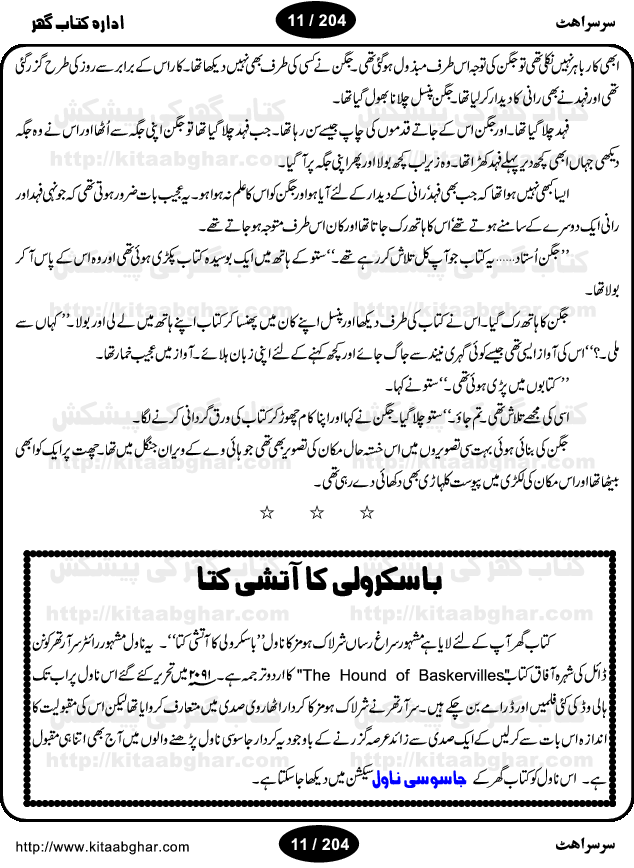 سرسراھٹ 11 / 204 ادارہ کتاب گھر
ابھی کار باہر نہیں نکلی تھی تو جگن کی توجہ اس طرف مبذول ہو گئی تھی۔ جگن نے کسی کی طرف بھی نہیں دیکھا تھا۔ کار اس کے برابر سے روز کی طرح گزر گئی
تھی اور فہد نے بھی رانی کا دیدار کر لیا تھا۔ جگن پنسل چلانا بھول گیا تھا۔
فہد چلا گیا تھا۔ اور جگن اس کے جاتے قدموں کی چاپ جیسے سن رہا تھا۔ جب فہد چلا گیا تھا تو جگن اپنی جگہ سے اُٹھا اور اس نے وہ جگہ
دیکھی جہاں ابھی کچھ دیر پہلے فہد کھڑا تھا۔ وہ زیر لب کچھ بولا اور پھر اپنی جگہ پر آ گیا۔
ایسا کبھی نہیں ہوا تھا کہ جب بھی فہد رانی کے دیدار کے لئے آیا ہو اور جگن کو اس کا علم نہ ہوا ہو۔ یہ عجیب بات ضرور ہوتی تھی کہ جونہی فہد اور
رانی ایک دوسرے کے سامنے ہوتے تھے اس کا ہاتھ رک جاتا تھا اور کان اس طرف متوجہ ہو جاتے تھے۔
’’جگن اُستاد...... یہ کتاب جو آپ کل تلاش کر رہے تھے۔‘‘ ستو کے ہاتھ میں ایک بوسیدہ کتاب پکڑی ہوئی تھی اور وہ اس کے پاس آ کر
بولا تھا۔
جگن کا ہاتھ رک گیا۔ اس نے کتاب کی طرف دیکھا اور پنسل اپنے کان میں پھنسا کر کتاب اپنے ہاتھ میں لے لی اور بولا۔ ’’کہاں سے
ملی۔؟‘‘ اس کی آواز ایسی تھی جیسے کوئی گہری نیند سے جاگ جائے اور کچھ کہنے کے لئے اپنی زبان ہلائے۔ آواز میں عجیب خمار تھا۔
’’کتابوں میں پڑی ہوئی تھی۔‘‘ ستو نے کہا۔
اسی کی مجھے تلاش تھی۔ تم جاؤ۔‘‘ ستو چلا گیا۔ جگن نے کہا اور اپنا کام چھوڑ کر کتاب کی ورق گردانی کرنے لگا۔
جگن کی بنائی ہوئی بہت سی تصویروں میں اس خستہ حال مکان کی تصویر بھی تھی جو ہائی وے کے ویران جنگل میں تھا۔ چھت پر ایک کوا بھی
بیٹھا تھا اور اس مکان کی لکڑی میں پیوست کلہاڑی بھی دکھائی دے رہی تھی۔
☆ ☆ ☆
باسکرولی کا آتشی کتا
کتاب گھر آپ کے لئے لایا ہے مشہور سراغ رساں شرلاک ہومز کا ناول ’’باسکرولی کا آتشی کتا‘‘۔ یہ ناول مشہور رائٹر سر آرتھر کونن
ڈائل کی شہرہ آفاق کتاب "The Hound of Baskervilles" کا اردو ترجمہ ہے۔ ۲۰۹۱ میں تحریر کئے گئے اس ناول پر اب تک
ہالی وڈ کی کئی فلمیں اور ڈرامے بن چکے ہیں۔ سر آرتھر نے شرلاک ہومز کا کردار اٹھاروی صدی میں متعارف کروایا تھا لیکن اس کی مقبولیت کا
اندازہ اس بات سے کر لیں کے ایک صدی سے زائد عرصہ گزرنے کے باوجود یہ کردار جاسوسی ناول پڑھنے والوں میں آج بھی اتنا ہی مقبول
ہے۔ اس ناول کو کتاب گھر کے جاسوسی ناول سیکشن میں دیکھا جا سکتا ہے۔
سرسراھٹ 11 / 204 http://www.kitaabghar.com
کتاب گھر کی پیشکش
http://kitaabghar.com